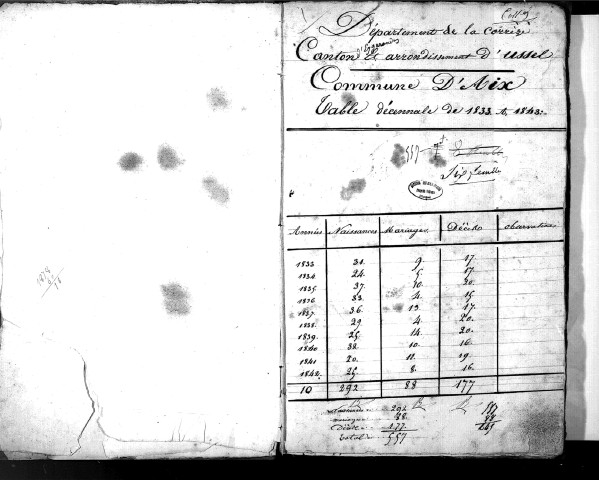 Département de la Corrèze
Canton d'Eygurande et arrondissement d'Ussel
Commune D'Aix
Table décennale de 1833 à 1843.
557
Six feuilles
Années Naissances Mariages Décès observations
1833 31. 9. 17.
1834 24. 5. 17.
1835 37. 10. 20.
1836 33. 4. 15.
1837 36. 13. 17.
1838. 29. 4. 20.
1839. 25. 14. 20.
1840 32. 10. 16.
1841 20. 11. 19.
1842. 25. 8. 16.
10 292 88 177
naissances 292
mariages 88
Décès 177
total 557